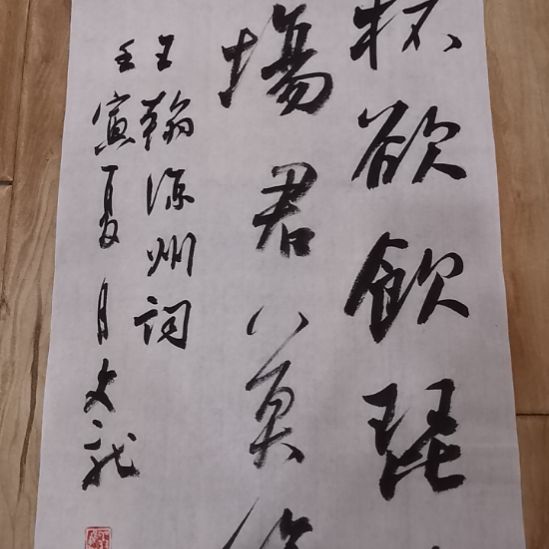 杯欲飲琵
場君莫
王翰涼州詞
壬寅夏月文龍